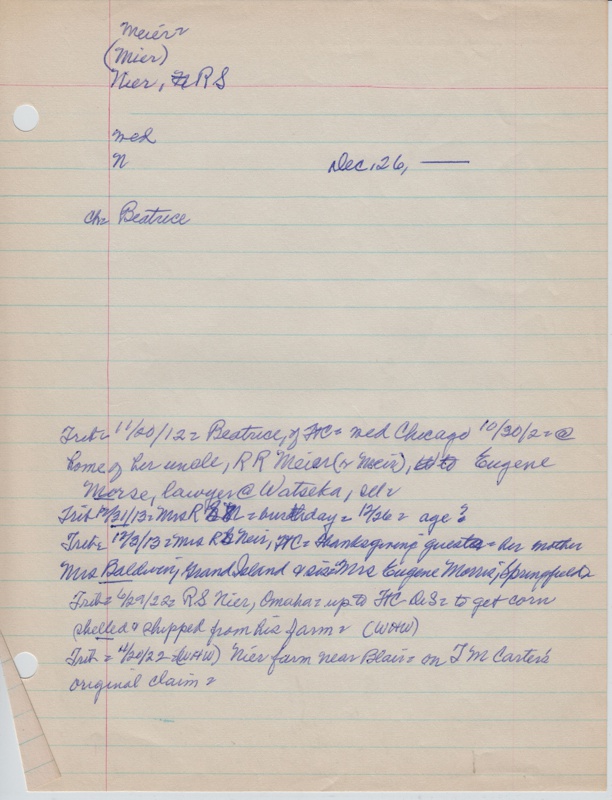 Meier =
(Mier)
Nier, RS
wed
N
Dec, 26, —
Ch = Beatrice
Trib = 11/20/12 = Beatrice, of FtC = wed Chicago 10/30/2 = @
home of her uncle, RR Meier (or Meir), to Eugene
Morse, lawyer @ Watseka, Ill =
Trib 12/31/13 = Mrs R = birthday = 12/26 = age?
Trib = 12/3/13 = Mrs RS Neir, FtC = Thanksgiving guests = her mother
Mrs Baldwin, Grand Island & sis = Mrs Eugene Morris, Springfield =
Trib = 6/29/22 = RS Nier, Omaha = up to FtC DeS = to get corn
shelled & shipped from his farm = (WHW)
Trib = 4/20/22 = (WHW) Nier farm near Blair = on J M Carter's
original claim =